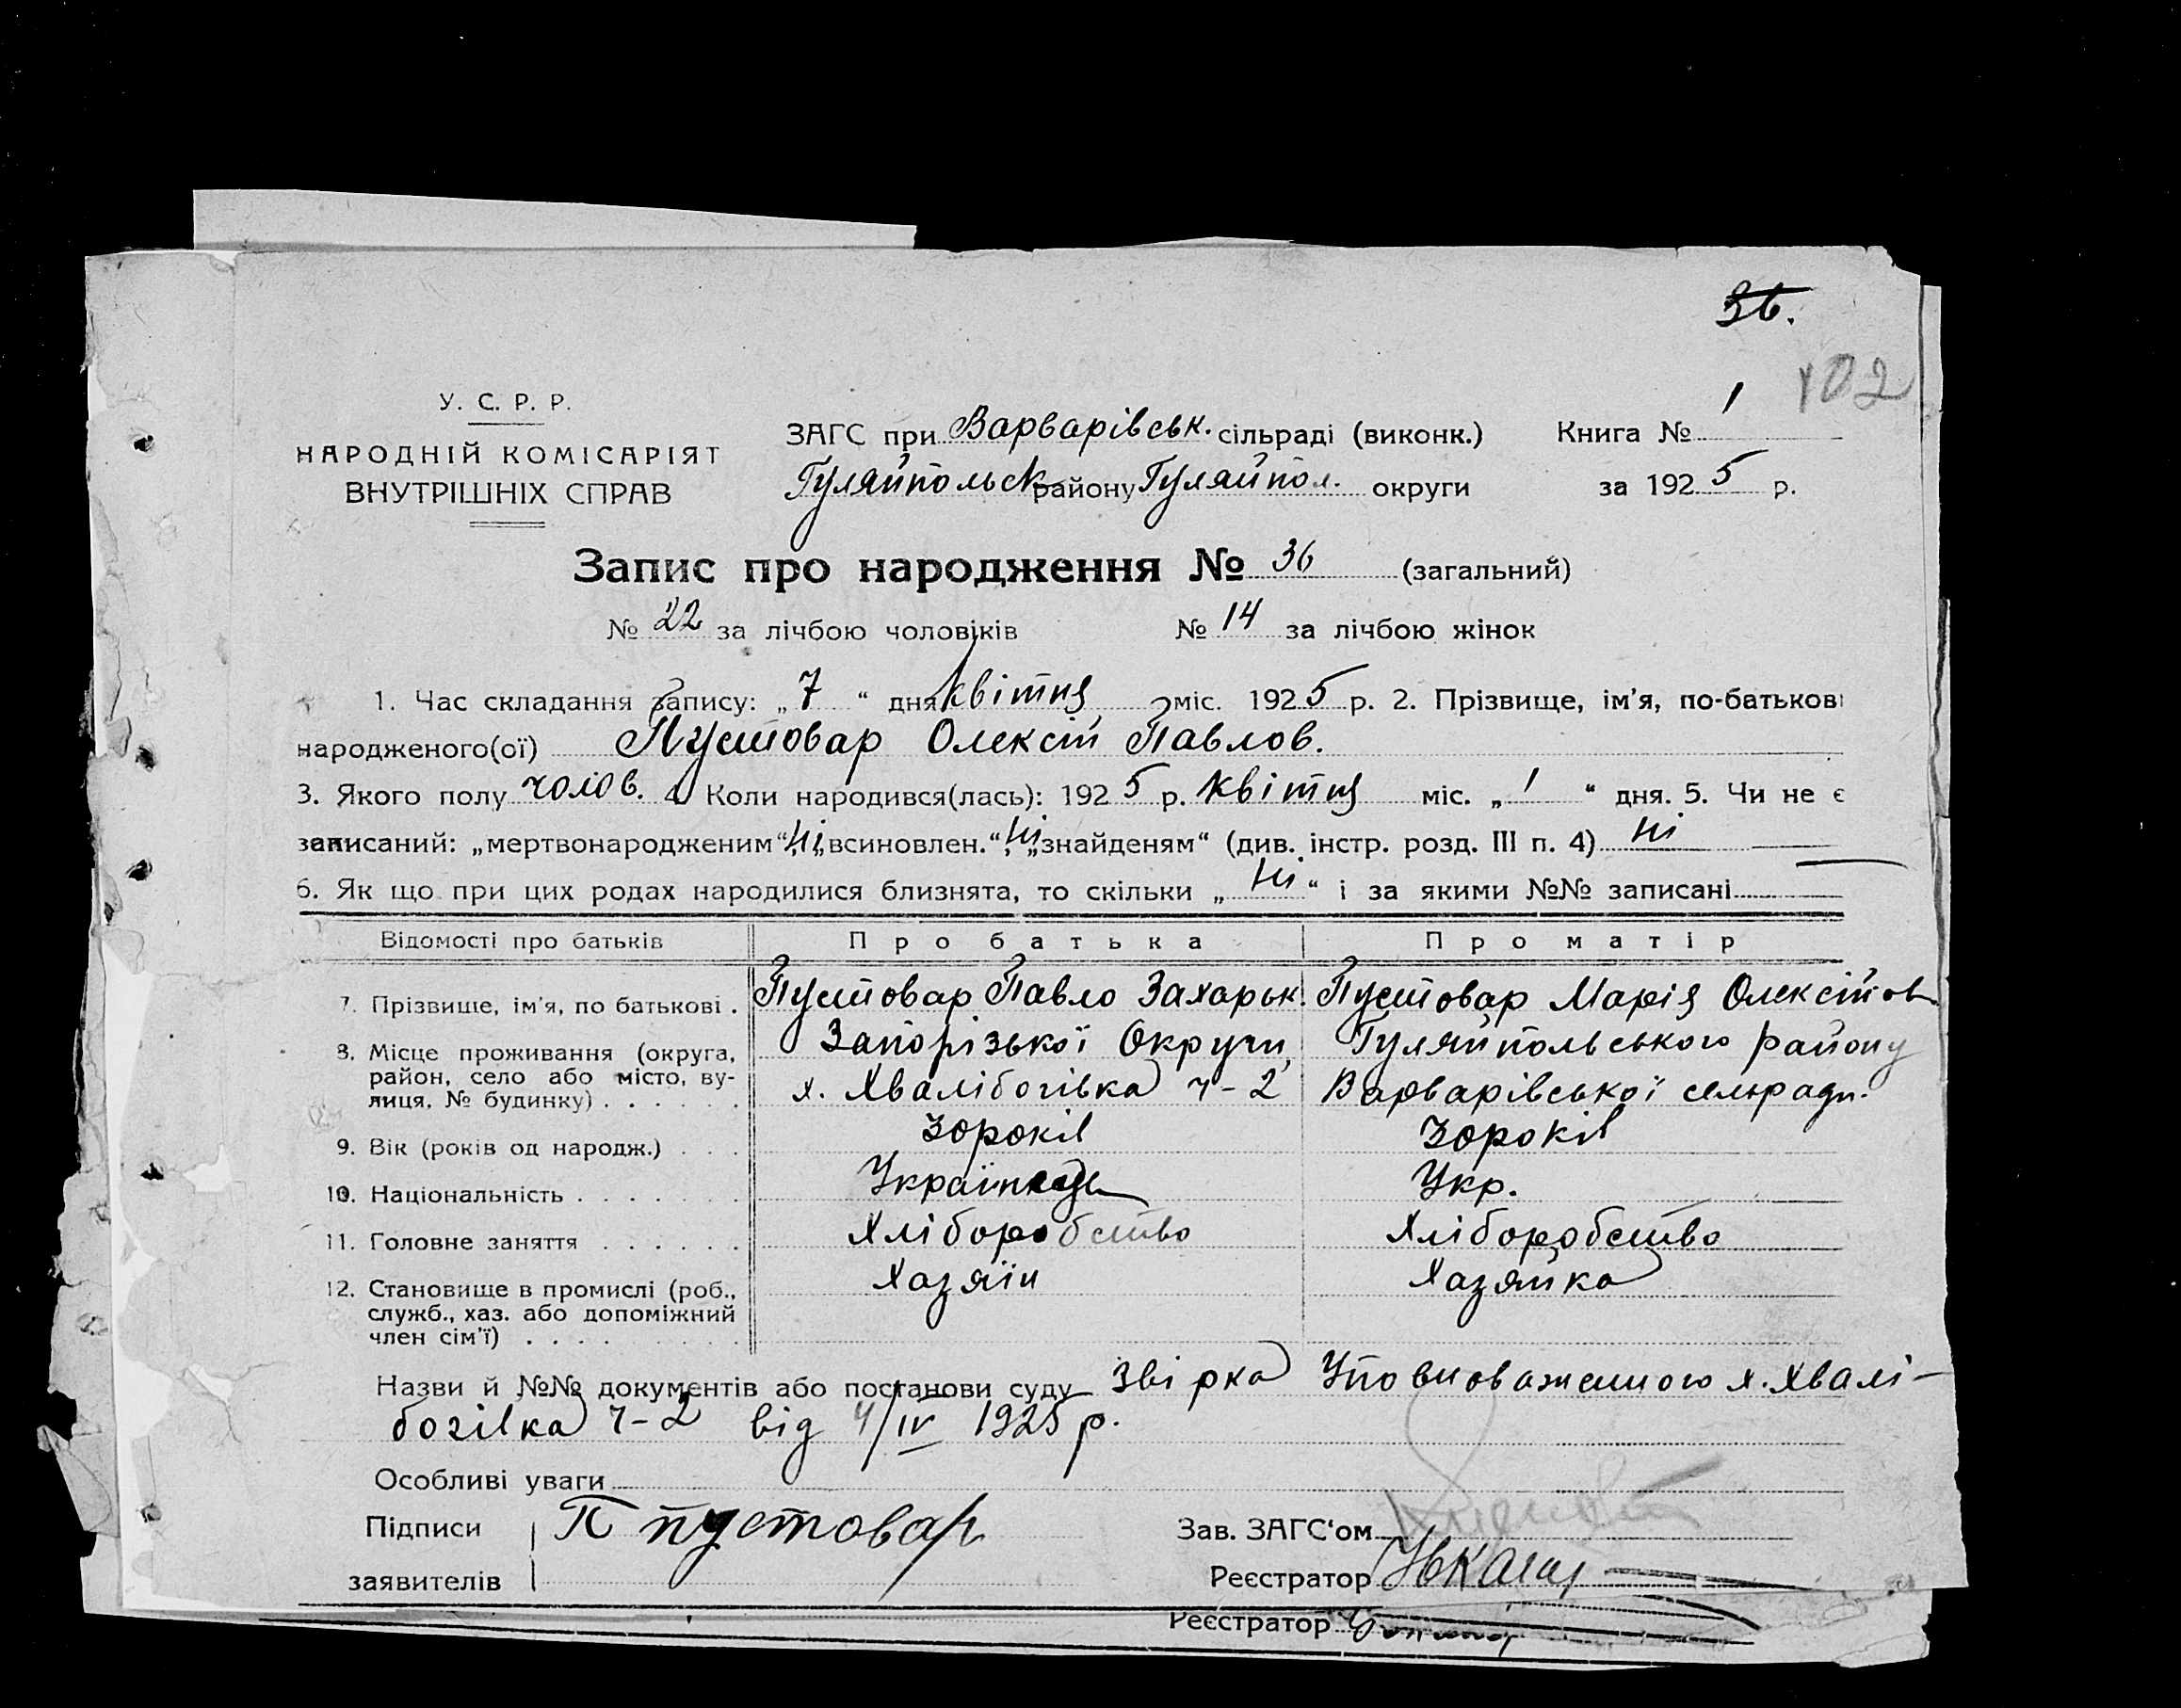 36.
102
У. С. Р. Р.
НАРОДНІЙ КОМІСАРІЯТ
ВНУТРІШНІХ СПРАВ
ЗАГС при Варварівськ. сільраді (виконк.) Книга № 1
Гуляйпольськ району Гуляйпол. округи за 1925 р.
Запис про народження № 36 (загальний)
№ 22 за лічбою чоловіків № 14 за лічбою жінок
1. Час складання запису: „7“ дня квітня міс. 1925 р. 2. Прізвище, ім’я, по-батькові
народженого(ої) Пустовар Олексій Павлов.
3. Якого полу чолов. 4. Коли народився(лась): 1925 р. квітня міс. „1“ дня. 5. Чи не є
записаний: „мертвонародженим“ ні, „всиновлен.“ ні, „знайденям“ (див. інстр. розд. III п. 4) ні
6. Як що при цих родах народилися близнята, то скільки „ні“ і за якими №№ записані —
Відомості про батьків Про батька Про матір
7. Прізвище, ім’я, по батькові . Пустовар Павло Захарьк. Пустовар Марія Олексійов
8. Місце проживання (округа, район, село або місто, вулиця, № будинку) Запорізької Округи, Гуляйпольського району
х. Хвалібогівка ч-2 Варварівської сельради.
9. Вік (років од народж.) 30 років 30 років
10. Національність Українець Укр.
11. Головне заняття Хліборобство Хліборобство
12. Становище в промислі (роб., служб., хаз. або допоміжний член сім’ї) Хазяїн Хазяйка
Назви й №№ документів або постанови суду Звірка Уповноваженного х. Хвалі-
богівка ч-2 від 4/IV 1925 р.
Особливі уваги
Підписи П Пустовар Зав. ЗАГС‘ом
заявителів Реєстратор
Реєстратор